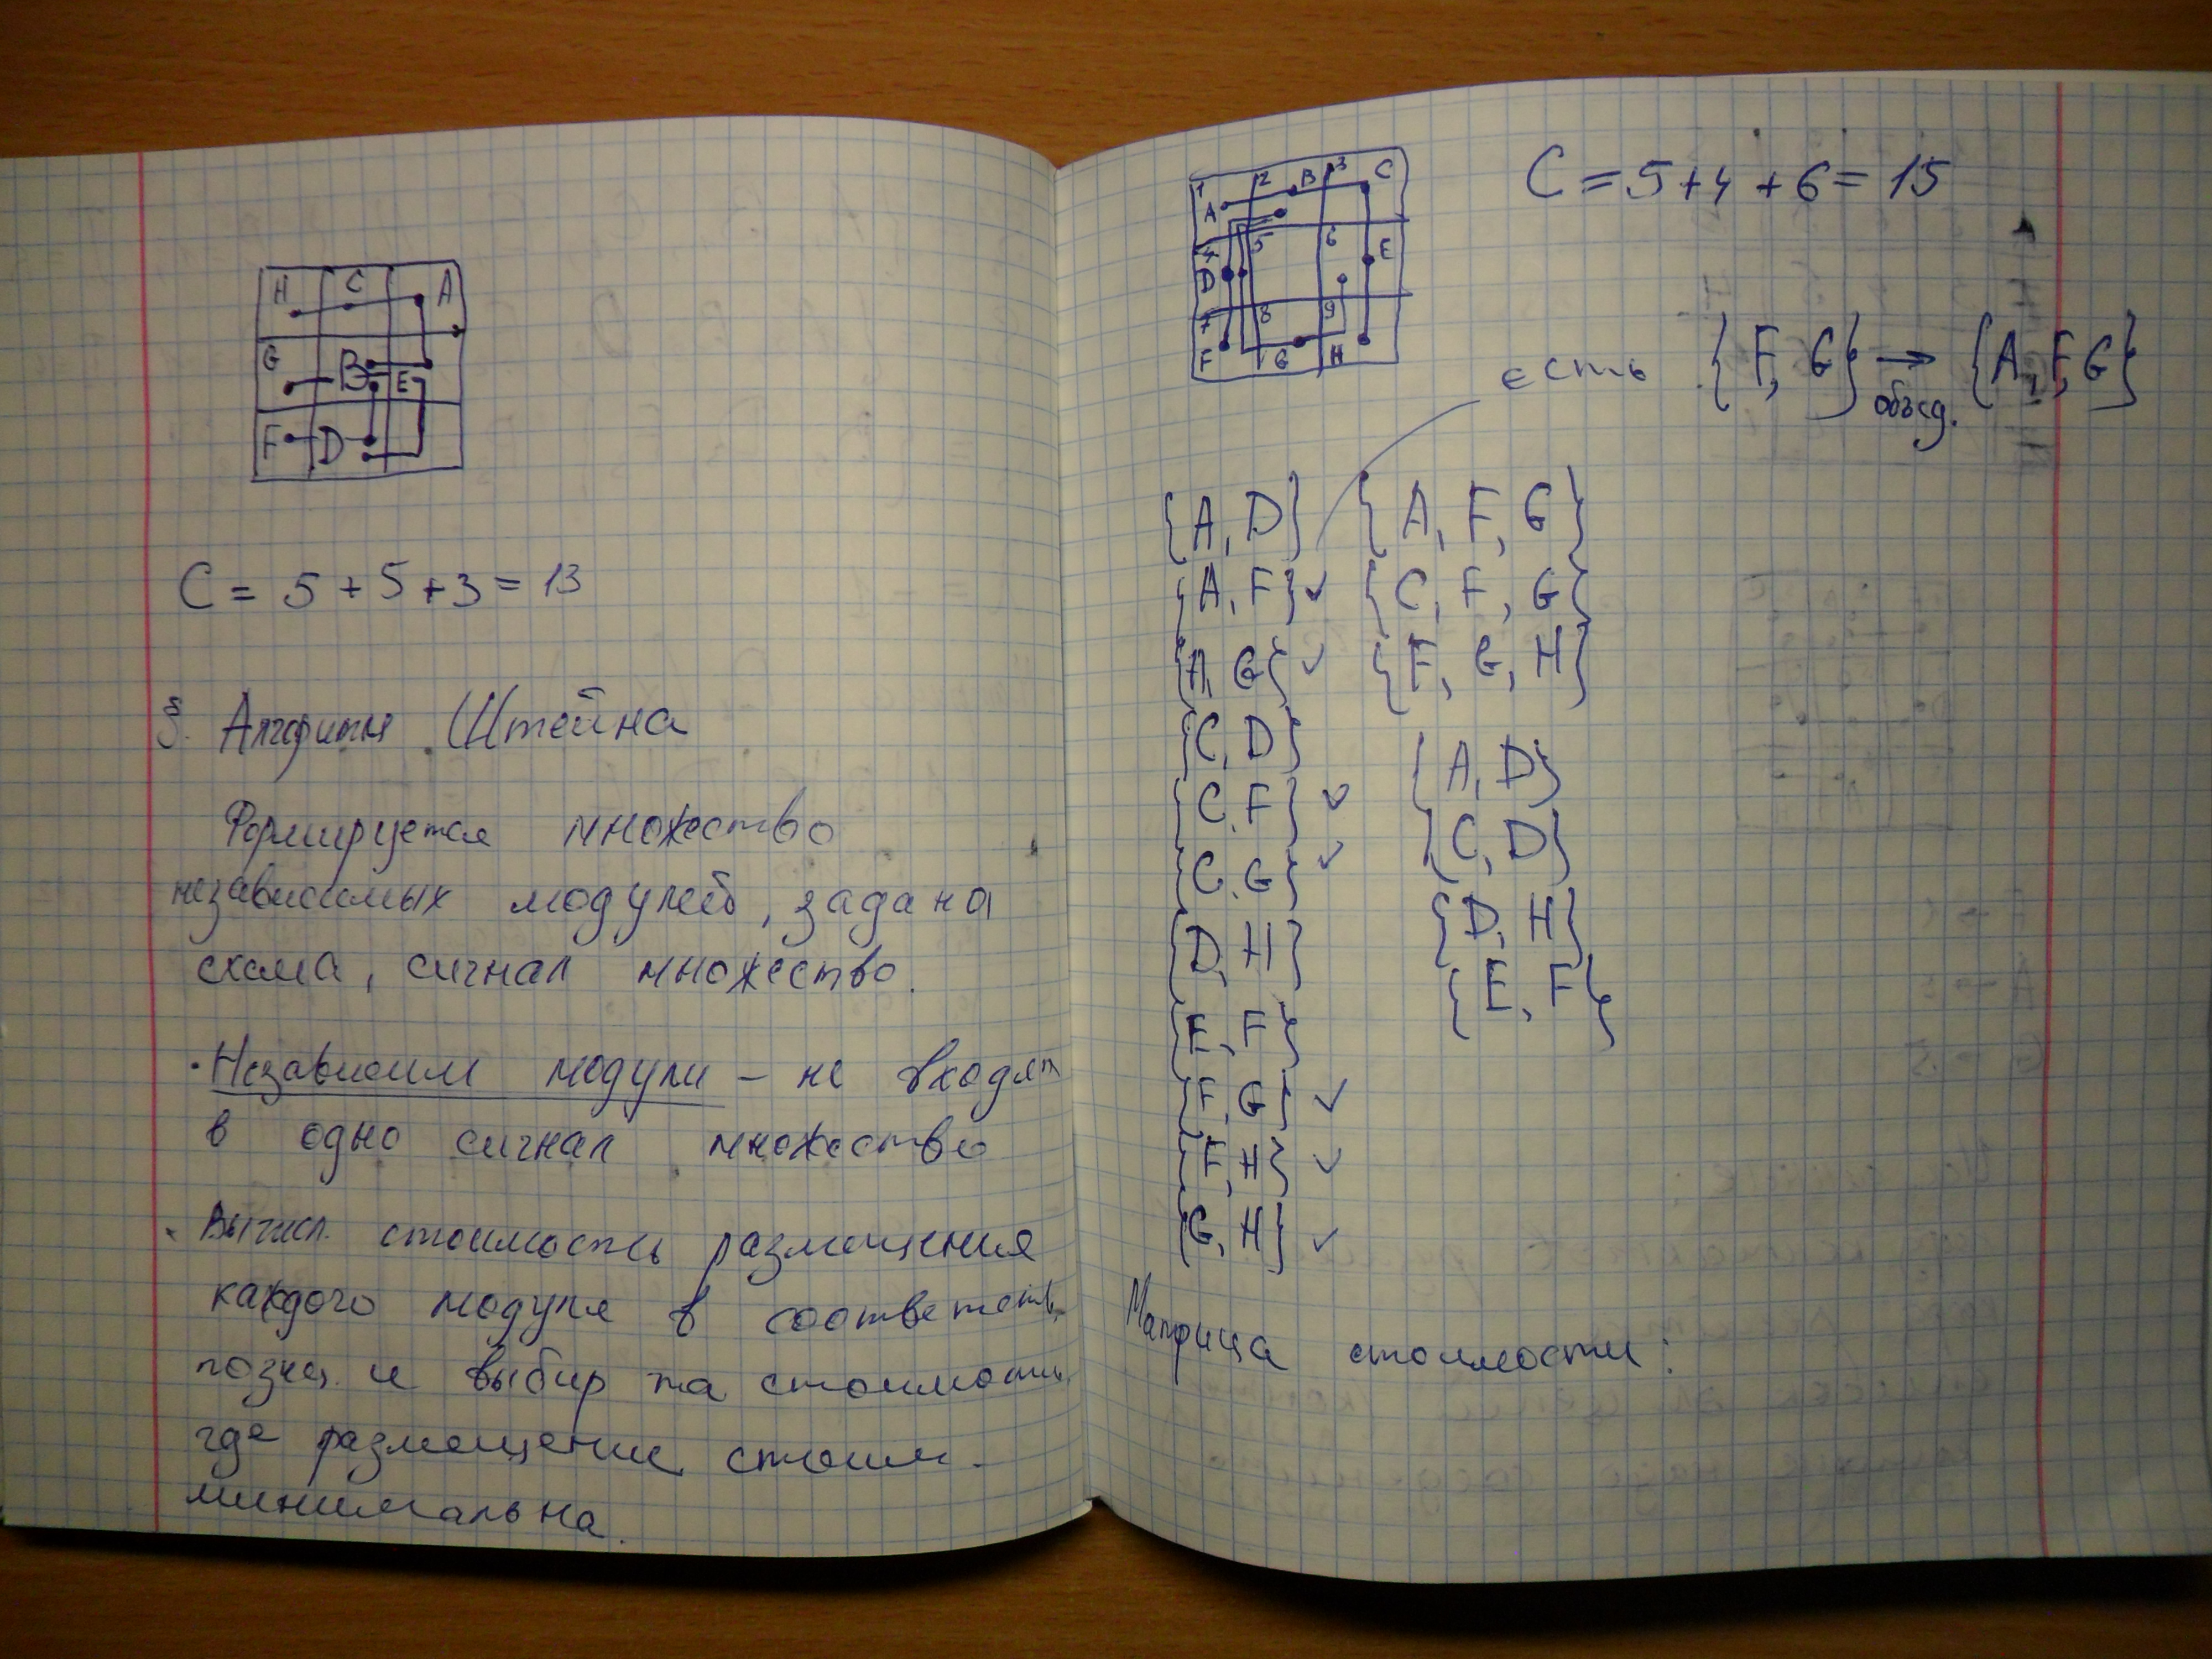 H C A
G B E
F D
C = 5 + 5 + 3 = 13
§. Алгоритм Штейна
Формируется множество
независимых модулей, задана
схема, сигнал множество.
· Независим модули – не входят
в одно сигнал множество
· Вычисл. стоимость размещения
каждого модуля в соответств.
позиц. и выбир та стоимость,
где размещение стоим.
минимальна.
1 2 B 3 C
A
4 5 6 E
D
7 8 9
F G H
C = 5 + 4 + 6 = 15
есть {F, G} → {A, F, G}
объед.
{A, D} {A, F, G}
{A, F} ✓ {C, F, G}
{A, G} ✓ {F, G, H}
{C, D}
{A, D}
{C, F} ✓
{C, D}
{C, G} ✓
{D, H}
{D, H}
{E, F}
{E, F}
{F, G} ✓
{F, H} ✓
{G, H} ✓
Матрица стоимости: